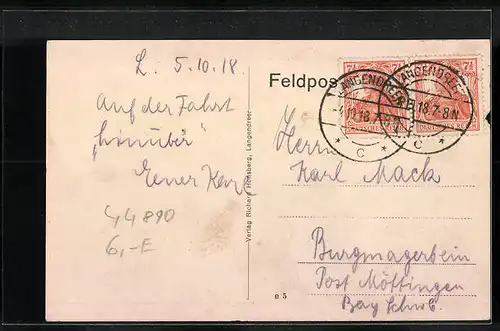 L. 5.10.18.
Auf der Fahrt
„hinüber"
Euer Karl
44890
6,-E
Verlag Richard Hensberg, Langendreer
Feldpost
7½ 7½
LANGENDREER
18.7-8N
c
LANGENDREER
18.7-8N
c
Herrn
Karl Mack
Burgmagerbein
Post Möttingen
Bay Schwb.
B 5